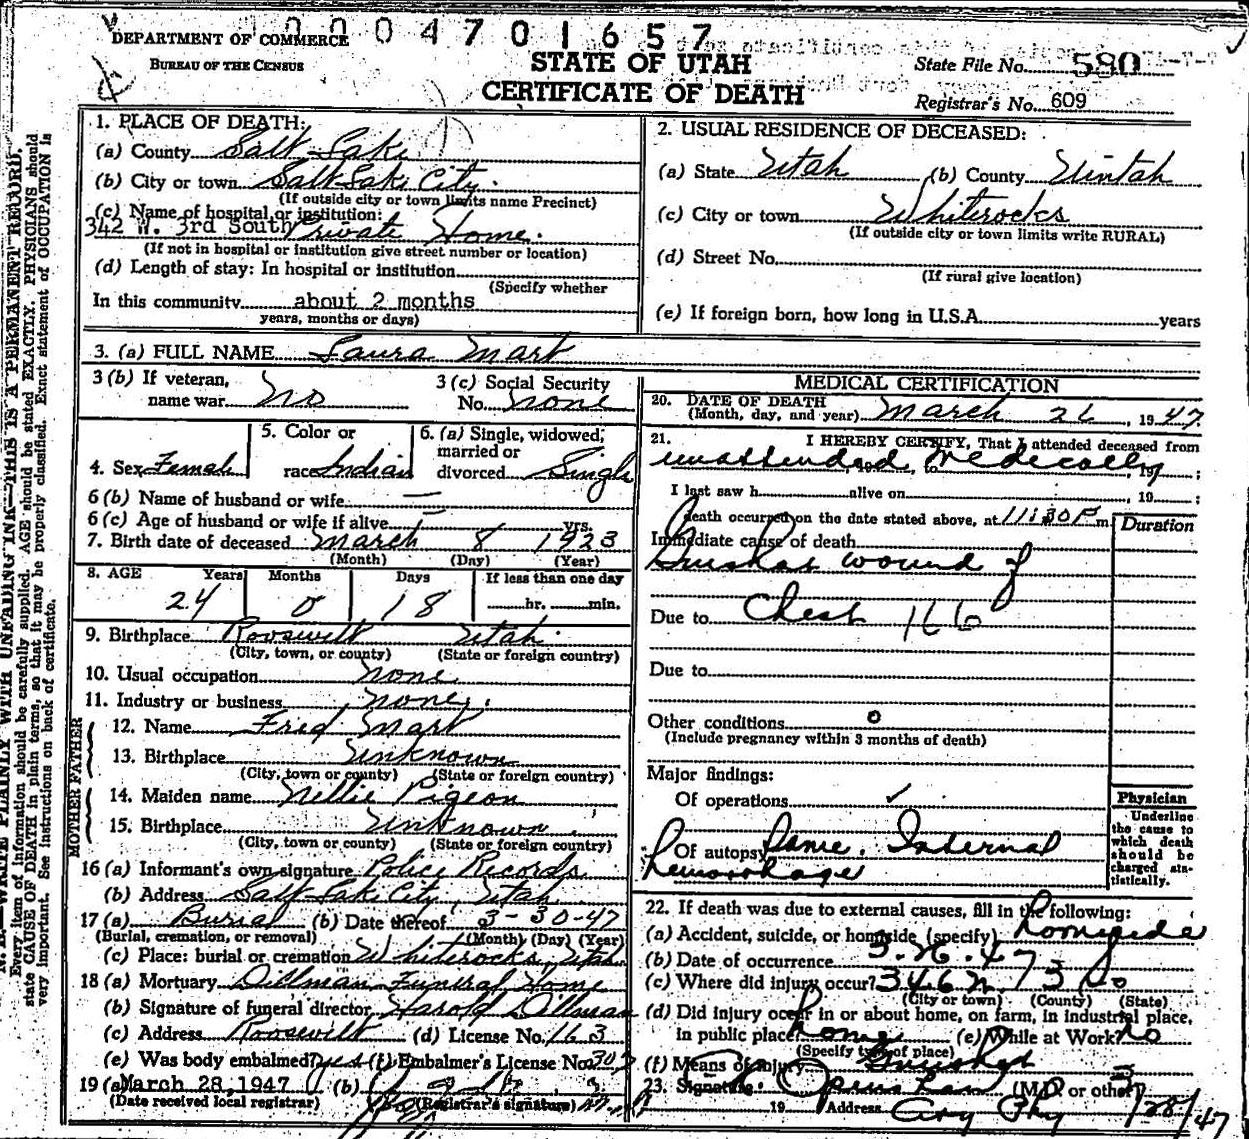 0004701657
DEPARTMENT OF COMMERCE
BUREAU OF THE CENSUS
STATE OF UTAH
CERTIFICATE OF DEATH
State File No. 580
Registrar's No. 609
1. PLACE OF DEATH:
(a) County Salt Lake
(b) City or town Salt Lake City.
(If outside city or town limits name Precinct)
(c) Name of hospital or institution:
342 W. 3rd South Private Home.
(If not in hospital or institution give street number or location)
(d) Length of stay: In hospital or institution
(Specify whether
In this community about 2 months
years, months or days)
2. USUAL RESIDENCE OF DECEASED:
(a) State Utah (b) County Uintah
(c) City or town Whiterocks
(If outside city or town limits write RURAL)
(d) Street No.
(If rural give location)
(e) If foreign born, how long in U.S.A. years
3. (a) FULL NAME Laura Mart
3 (b) If veteran, name war No
3 (c) Social Security No. none
4. Sex Female
5. Color or race Indian
6. (a) Single, widowed, married or divorced Single
6 (b) Name of husband or wife —
6 (c) Age of husband or wife if alive — yrs.
7. Birth date of deceased March 8 1923
(Month) (Day) (Year)
8. AGE Years Months Days If less than one day
24 0 18 hr. min.
9. Birthplace Roosevelt Utah.
(City, town, or county) (State or foreign country)
10. Usual occupation none
11. Industry or business none.
FATHER
12. Name Fred Mart
13. Birthplace Unknown
(City, town or county) (State or foreign country)
MOTHER
14. Maiden name Nellie Pigeon
15. Birthplace Unknown
(City, town or county) (State or foreign country)
16 (a) Informant's own signature Police Records
(b) Address Salt Lake City, Utah
17 (a) Burial (b) Date thereof 3-30-47
(Burial, cremation, or removal) (Month) (Day) (Year)
(c) Place: burial or cremation Whiterocks, Utah
18 (a) Mortuary Dillman Funeral Home
(b) Signature of funeral director Harold Dillman
(c) Address Roosevelt (d) License No. 163
(e) Was body embalmed? yes (f) Embalmer's License No. 307
19 (a) March 28, 1947 (b)
(Date received local registrar) (Registrar's signature)
MEDICAL CERTIFICATION
20. DATE OF DEATH
(Month, day, and year) March 26, 1947
21. I HEREBY CERTIFY, That I attended deceased from
unattended medically, 19 ;
I last saw h alive on , 19 ;
Death occurred on the date stated above, at 11:30 P m.
Duration
Immediate cause of death
Gunshot wound of
Due to Chest 166
Due to
Other conditions 0
(Include pregnancy within 3 months of death)
Major findings:
Of operations ✓
Of autopsy Same. Internal
hemorrhage
Physician
Underline the cause to which death should be charged statistically.
22. If death was due to external causes, fill in the following:
(a) Accident, suicide, or homicide (specify) homicide
(b) Date of occurrence 3.26.47
(c) Where did injury occur? 346 W. 3 So
(City or town) (County) (State)
(d) Did injury occur in or about home, on farm, in industrial place,
in public place home (e) While at Work? no
(Specify type of place)
(f) Means of injury Gunshot
23. Signature (M.D. or other)
19 Address City Phy 3/28/47
WRITE PLAINLY WITH UNFADING INK—THIS IS A PERMANENT RECORD.
Every item of information should be carefully supplied. AGE should be stated EXACTLY. PHYSICIANS should
state CAUSE OF DEATH in plain terms, so that it may be properly classified. Exact statement of OCCUPATION is
very important. See instructions on back of certificate.